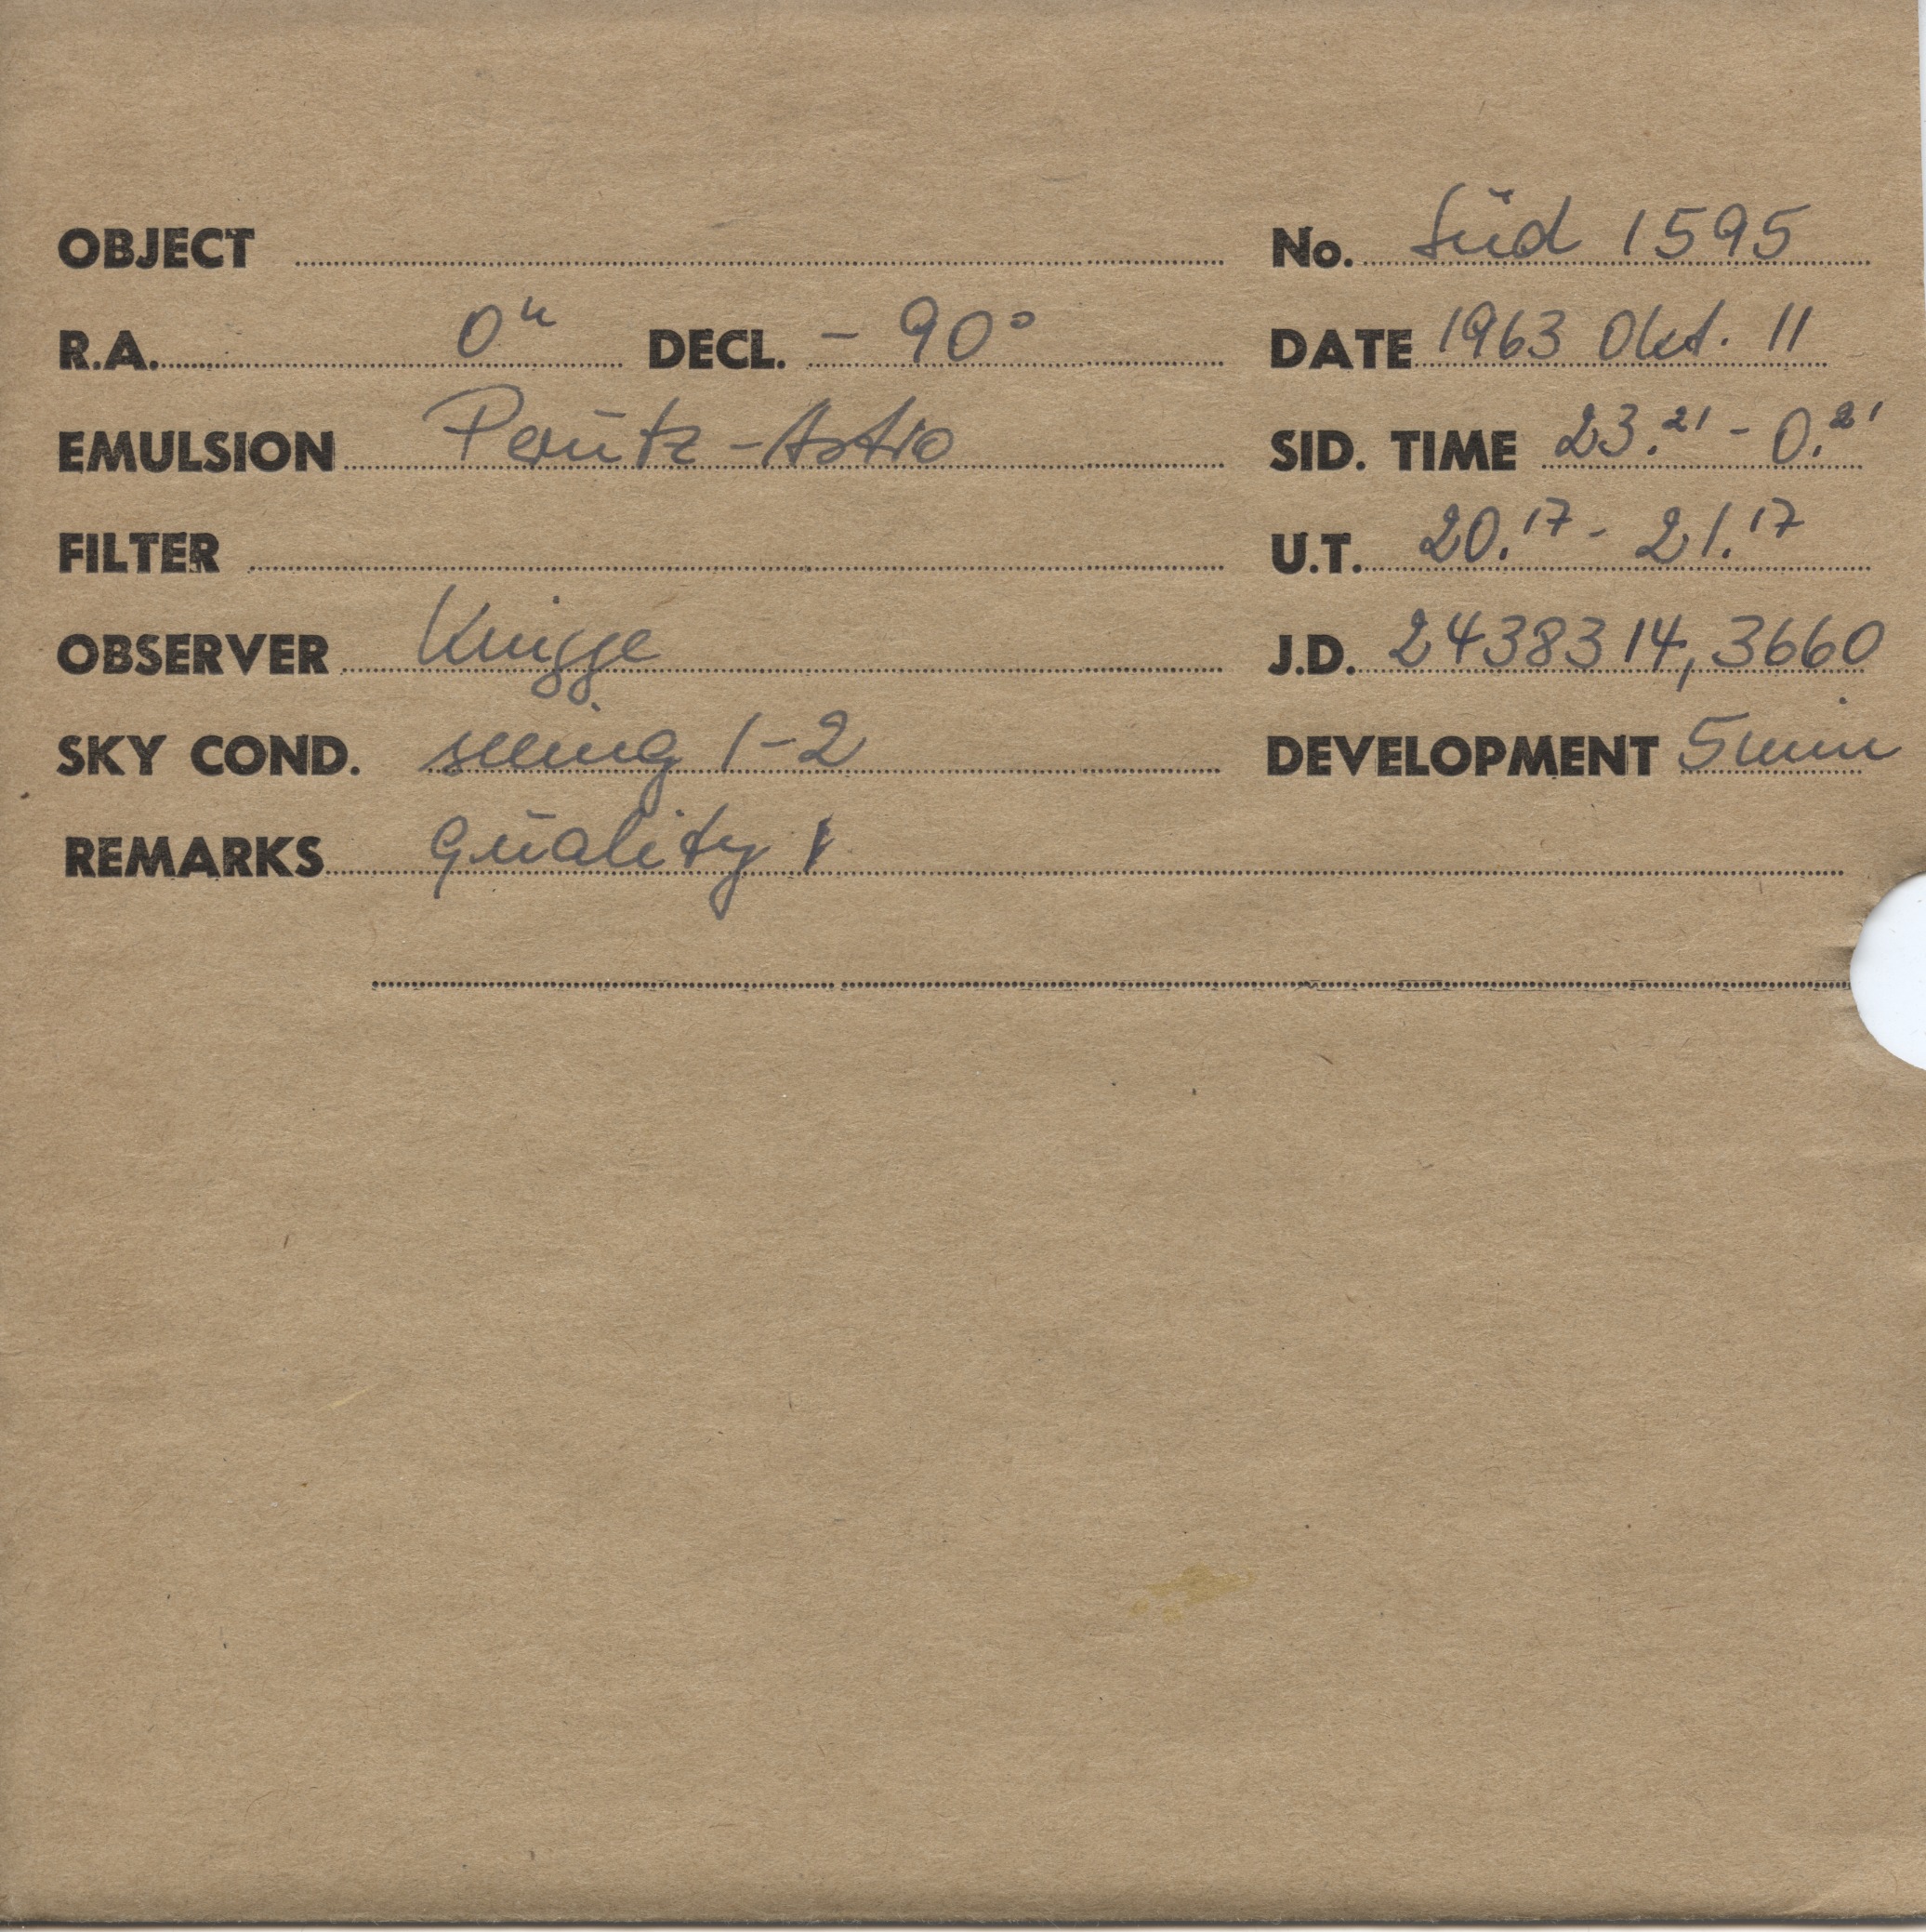 OBJECT No. Süd 1595
R.A. 0h DECL. - 90° DATE 1963 Okt. 11
EMULSION Perutz-Astro SID. TIME 23.21 - 0.21
FILTER U.T. 20.17 - 21.17
OBSERVER Knigge J.D. 2438314,3660
SKY COND. seeing 1-2 DEVELOPMENT 5 min
REMARKS quality 1